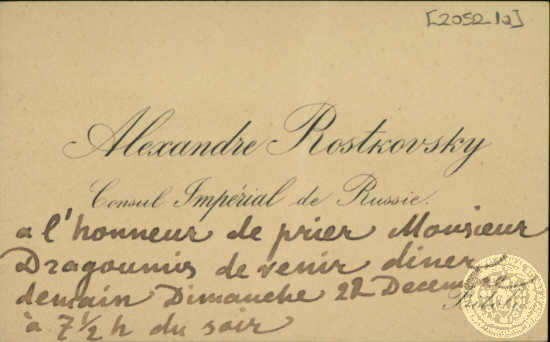 [2052 1a]
Alexandre Rostkovsky
Consul Impérial de Russie.
a l'honneur de prier Monsieur
Dragoumis de venir diner
demain Dimanche 22 Decembre
à 7½ h du soir